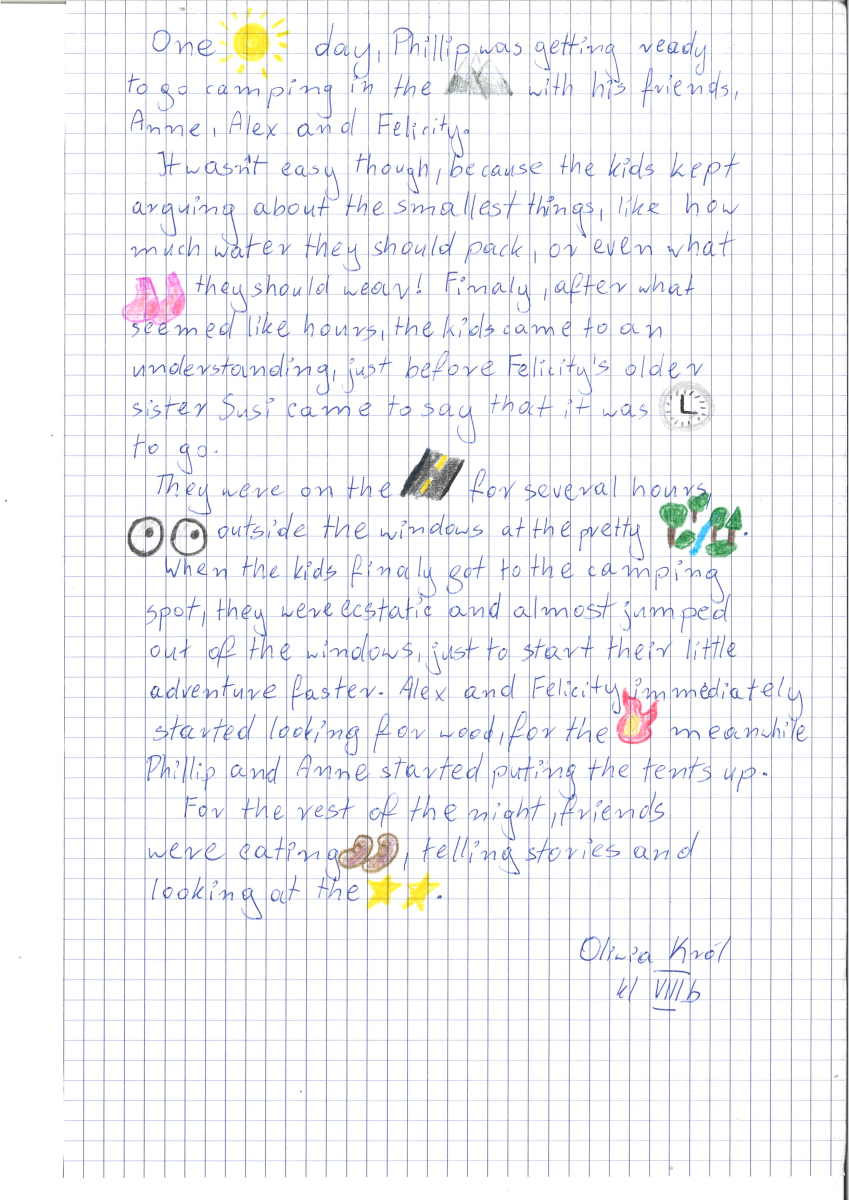 One day, Phillip was getting ready
to go camping in the with his friends,
Anne, Alex and Felicity.
It wasn't easy though, because the kids kept
arguing about the smallest things, like how
much water they should pack, or even what
they should wear! Finaly, after what
seemed like hours, the kids came to an
understanding, just before Felicity's older
sister Susi came to say that it was
to go.
They were on the for several hours,
outside the windows at the pretty .
When the kids finaly got to the camping
spot, they were ecstatic and almost jumped
out of the windows, just to start their little
adventure faster. Alex and Felicity immediately
started looking for wood, for the meanwhile
Phillip and Anne started puting the tents up.
For the rest of the night, friends
were eating , telling stories and
looking at the .
Oliwia Król
kl VIII b